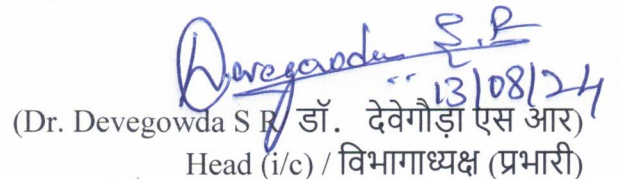 Devegowda S.R
13/08/24
(Dr. Devegowda S R/ डॉ. देवेगौड़ा एस आर)
Head (i/c) / विभागाध्यक्ष (प्रभारी)